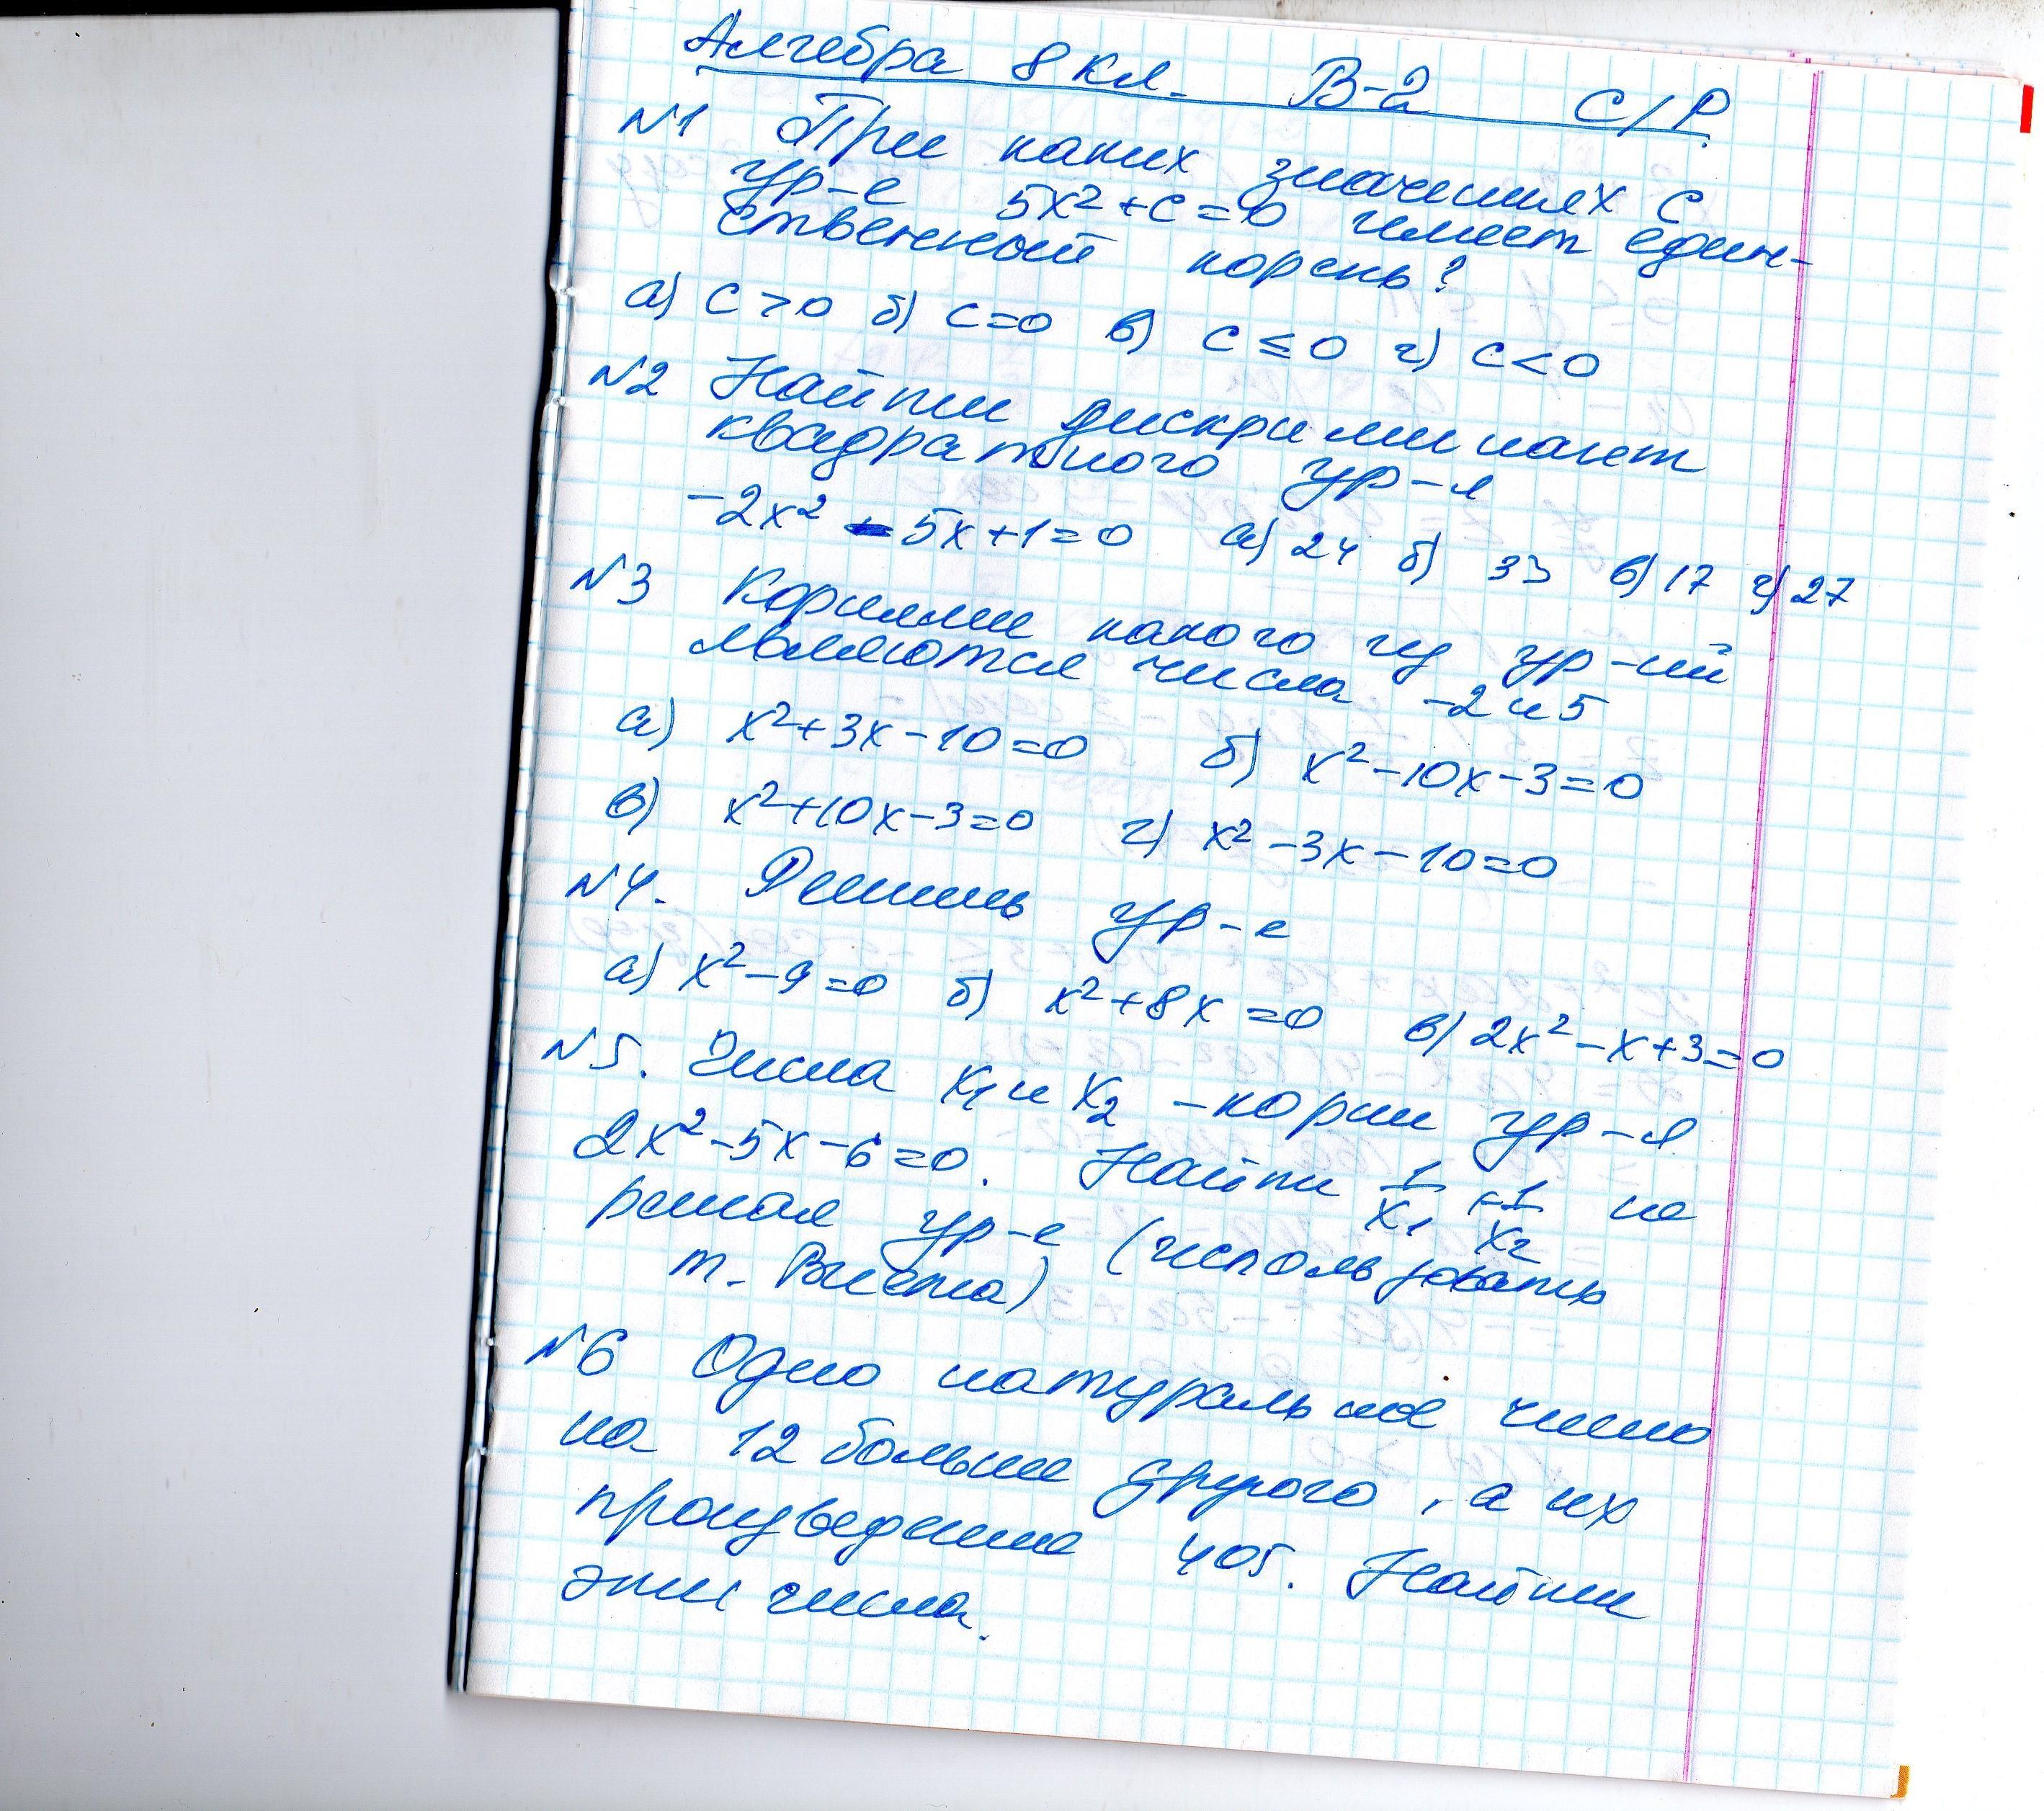 Алгебра 8 кл. В-2 С/Р
№1 При каких значениях с
ур-е 5x²+c=0 имеет един-
ственный корень?
а) c>0 б) c=0 в) c≤0 г) c<0
№2 Найти дискриминант
квадратного ур-я
-2x² - 5x+1=0 а) 24 б) 33 в) 17 г) 27
№3 Корнями какого из ур-ий
являются числа -2 и 5
а) x²+3x-10=0 б) x²-10x-3=0
в) x²+10x-3=0 г) x²-3x-10=0
№4. Решить ур-е
а) x²-9=0 б) x²+8x=0 в) 2x²-x+3=0
№5. Числа x₁ и x₂ - корни ур-я
2x²-5x-6=0. Найти 1/x₁ + 1/x₂ не
решая ур-е (использовать
т. Виета)
№6 Одно натуральное число
на 12 больше другого, а их
произведение 405. Найти
эти числа.